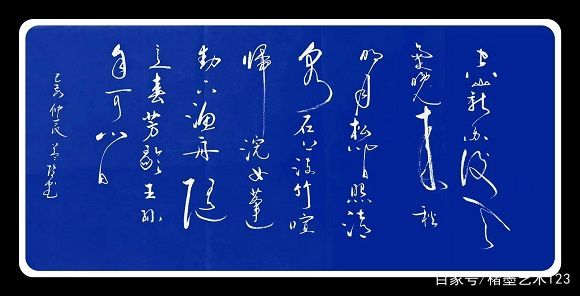 空山新雨後天
氣晚来秋
明月松间照清
泉石上流竹喧
歸浣女蓮
動下漁舟随
意春芳歇王孫
自可留
己亥仲夏书
百家号/楮墨艺术123